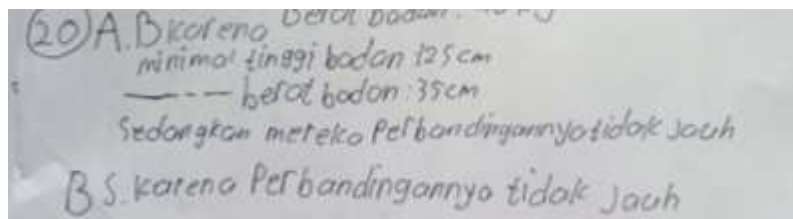 berat badan:
20 A. B karena
minimal tinggi badan 125cm
—--- berat badan: 35cm
Sedangkan mereka Perbandingannya tidak Jauh
B S. karena Perbandingannya tidak Jauh